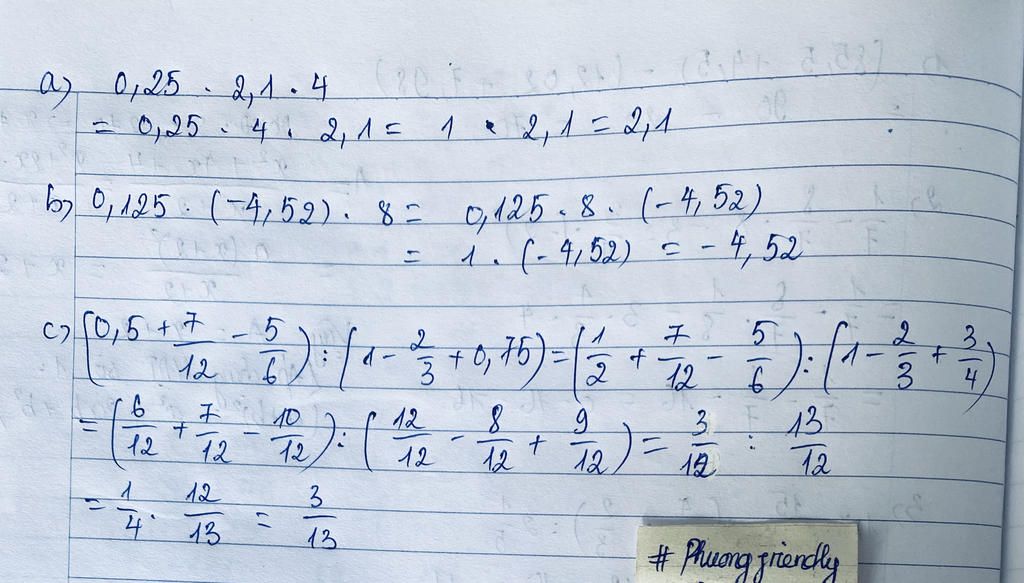 a) 0,25 . 2,1 . 4
= 0,25 . 4 . 2,1 = 1 . 2,1 = 2,1
b) 0,125 . (-4,52) . 8 = 0,125 . 8 . (-4,52)
= 1 . (-4,52) = -4,52
c) (0,5 + 7/12 - 5/6) : (1 - 2/3 + 0,75) = (1/2 + 7/12 - 5/6) : (1 - 2/3 + 3/4)
= (6/12 + 7/12 - 10/12) : (12/12 - 8/12 + 9/12) = 3/12 : 13/12
= 1/4 . 12/13 = 3/13
# Phuongfriendly